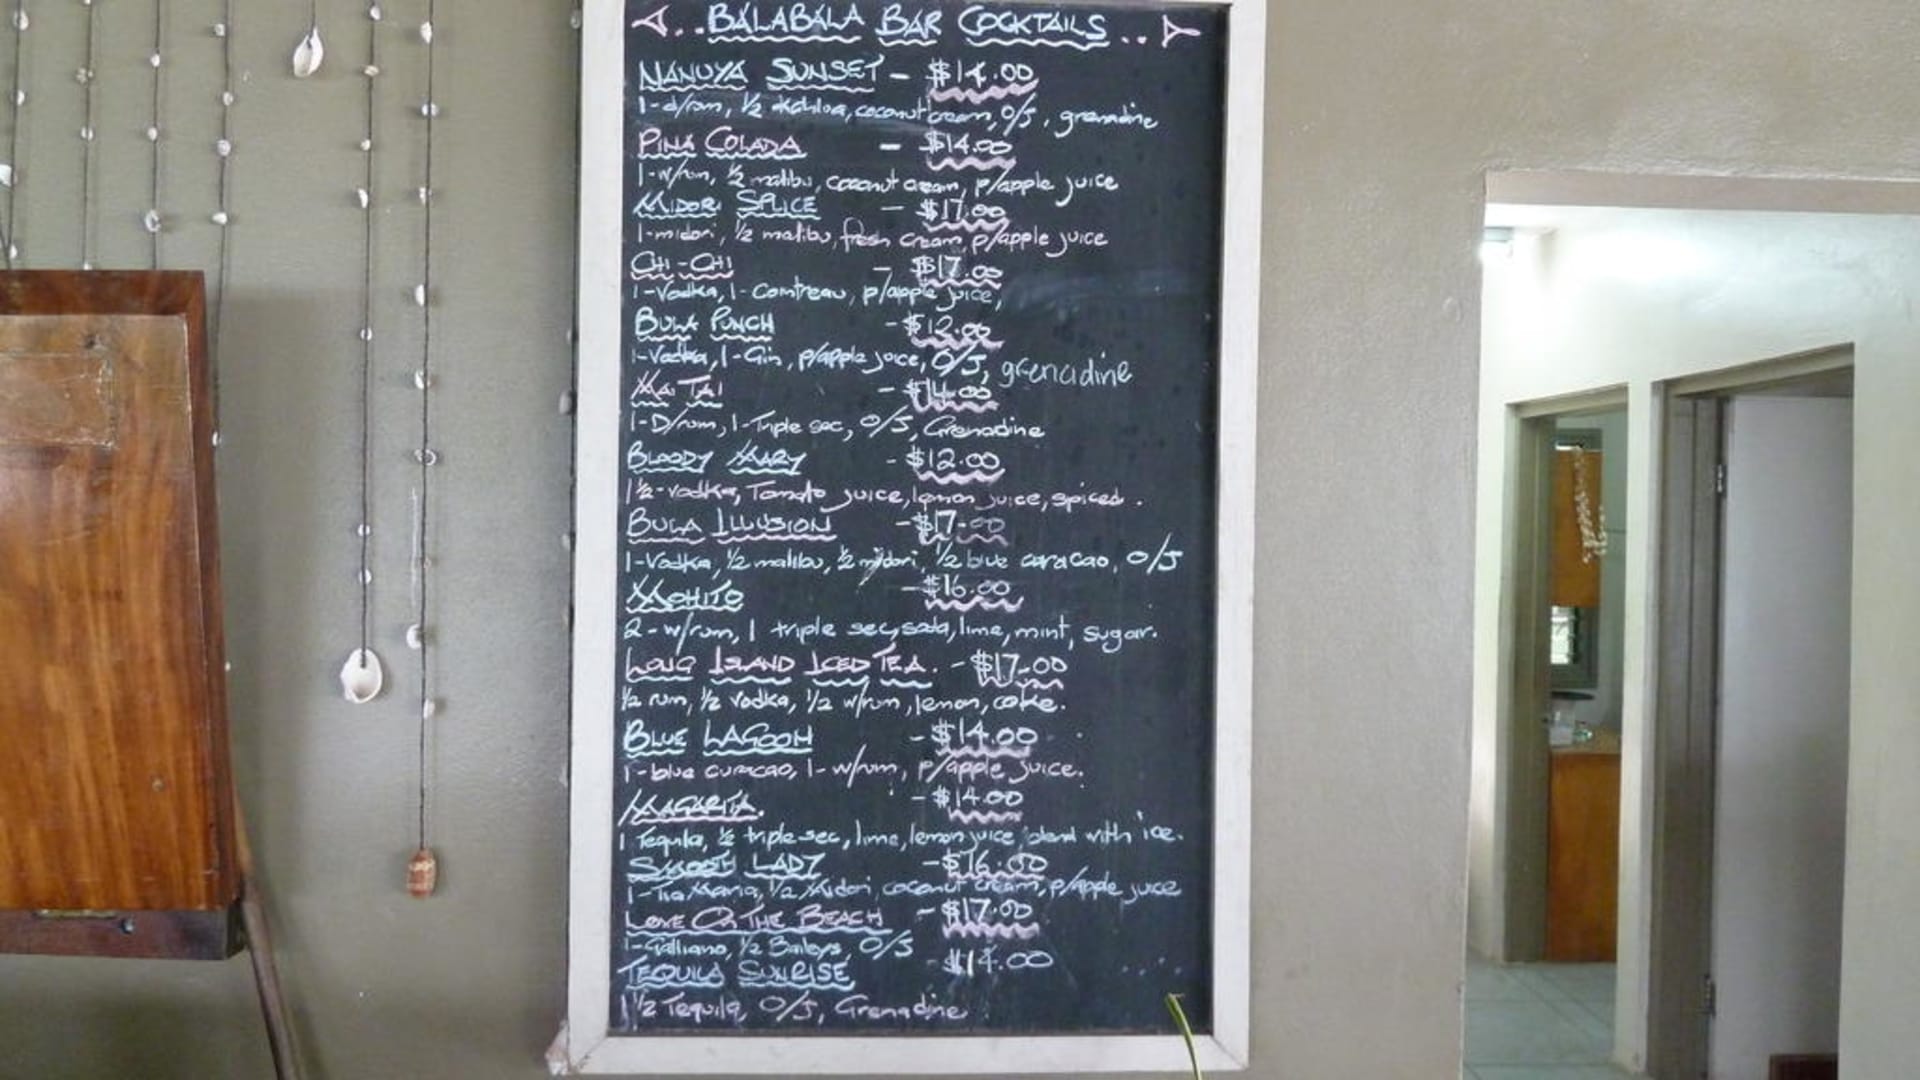 BALABALA BAR COCKTAILS
NANUYA SUNSET - $14.00
1-d/rum, 1/2 kahlua, coconut cream, O/J, grenadine
PINA COLADA - $14.00
1-w/rum, 1/2 malibu, coconut cream, p/apple juice
MIDORI SPLICE - $17.00
1-midori, 1/2 malibu, fresh cream, p/apple juice
CHI-CHI - $17.00
1-Vodka, 1-Contreau, p/apple juice,
BULA PUNCH - $12.00
1-Vodka, 1-Gin, p/apple juice, O/J, grenadine
MAI TAI - $14.00
1-D/rum, 1-Triple sec, O/J, Grenadine
BLOODY MARY - $12.00
1 1/2-vodka, Tomato juice, lemon juice, spiced.
BULA ILLUSION - $17.00
1-Vodka, 1/2 malibu, 1/2 midori, 1/2 blue curacao, O/J
MOHITO - $16.00
2-w/rum, 1 triple sec, soda, lime, mint, sugar.
LONG ISLAND ICED TEA. - $17.00
1/2 rum, 1/2 vodka, 1/2 w/rum, lemon, coke.
BLUE LAGOON - $14.00
1-blue curacao, 1-w/rum, p/apple juice.
MAGARITA. - $14.00
1 Tequila, 1/2 triple sec, lime, lemon juice, blend with ice.
SMOOTH LADY - $16.00
1-Tia Maria, 1/2 Midori, coconut cream, p/apple juice
LOVE ON THE BEACH - $17.00
1-Galliano, 1/2 Baileys, O/J
TEQUILA SUNRISE - $14.00
1 1/2 Tequila, O/J, Grenadine